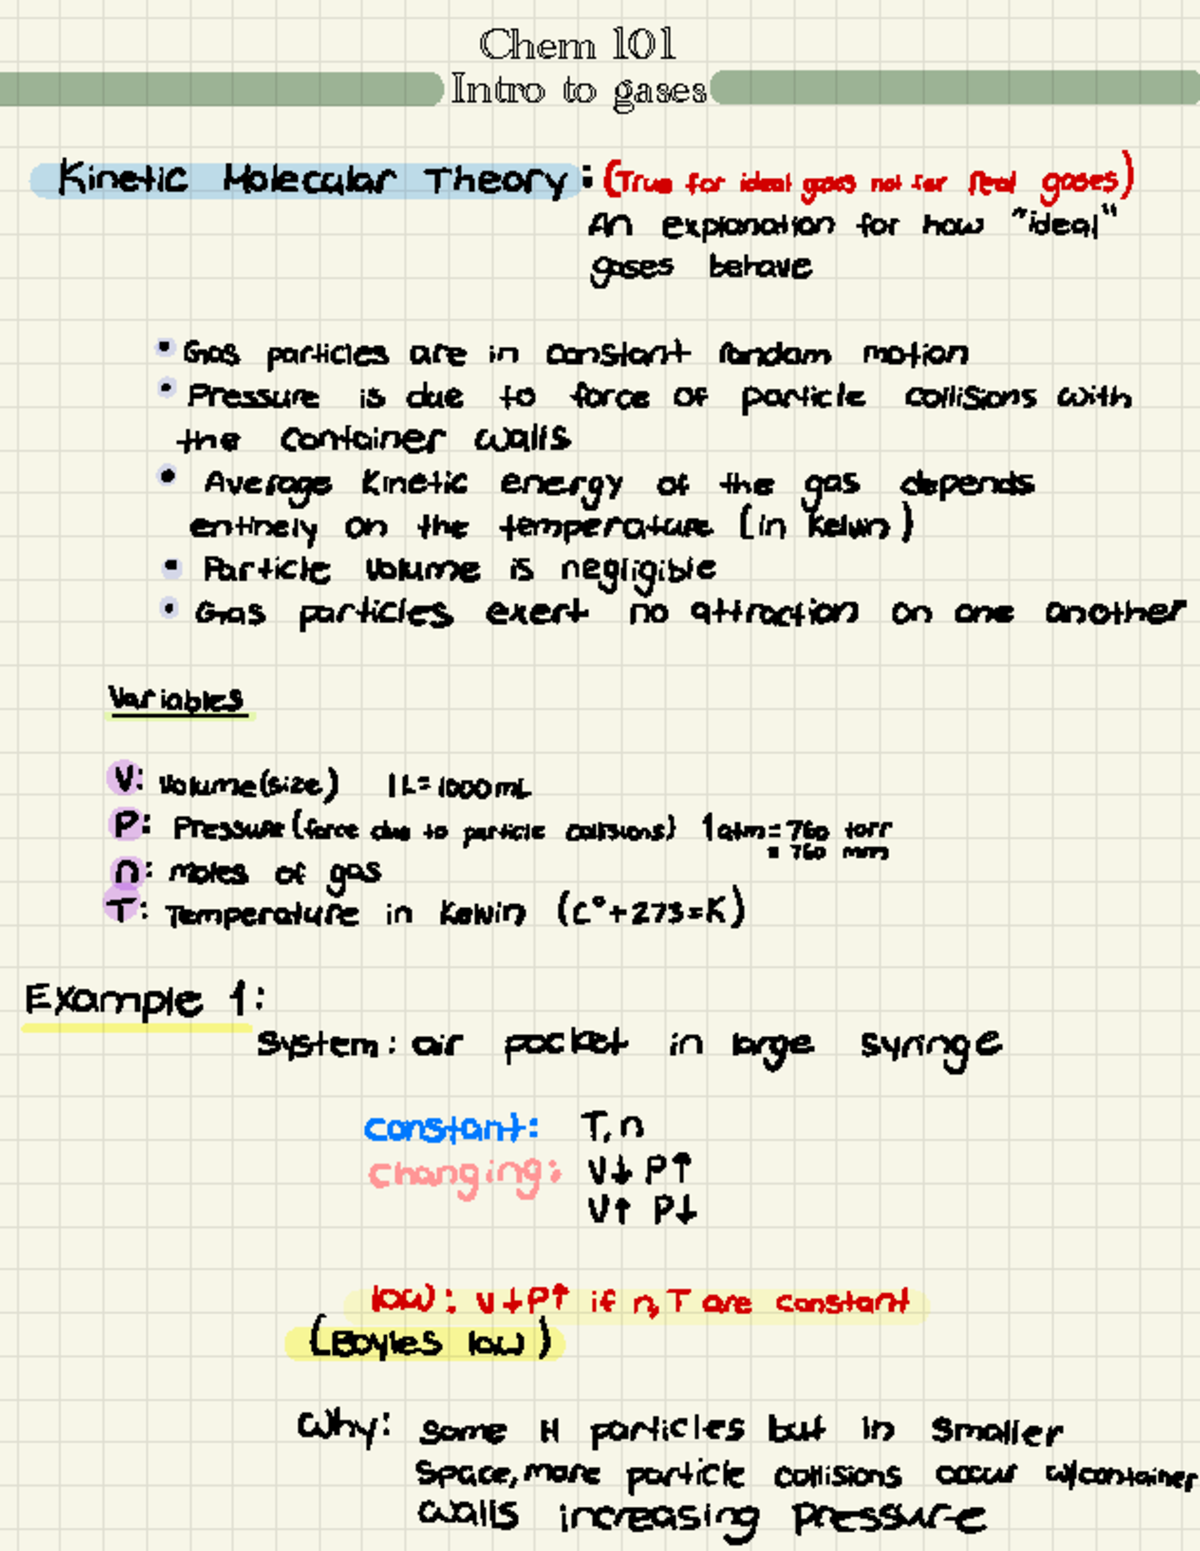 Chem 101
Intro to gases
Kinetic Molecular Theory: (True for ideal gases not for real gases)
An explanation for how "ideal"
gases behave
• Gas particles are in constant random motion
• Pressure is due to force of particle collisions with
the container walls
• Average Kinetic energy of the gas depends
entinely on the temperature (in Kelvin)
• Particle Volume is negligible
• Gas particles exert no attraction on one another
Variables
V: Volume(size) 1L=1000mL
P: Pressure (force due to particle collisions) 1atm=760 torr
= 760 mm
n: moles of gas
T: Temperature in Kelvin (C°+273=K)
Example 1:
System: air pocket in large syringe
constant: T, n
changing: V↓ P↑
V↑ P↓
law: V↓P↑ if n,T are constant
(Boyles law)
Why: Same # particles but in smaller
space, more particle collisions occur w/container
walls increasing pressure